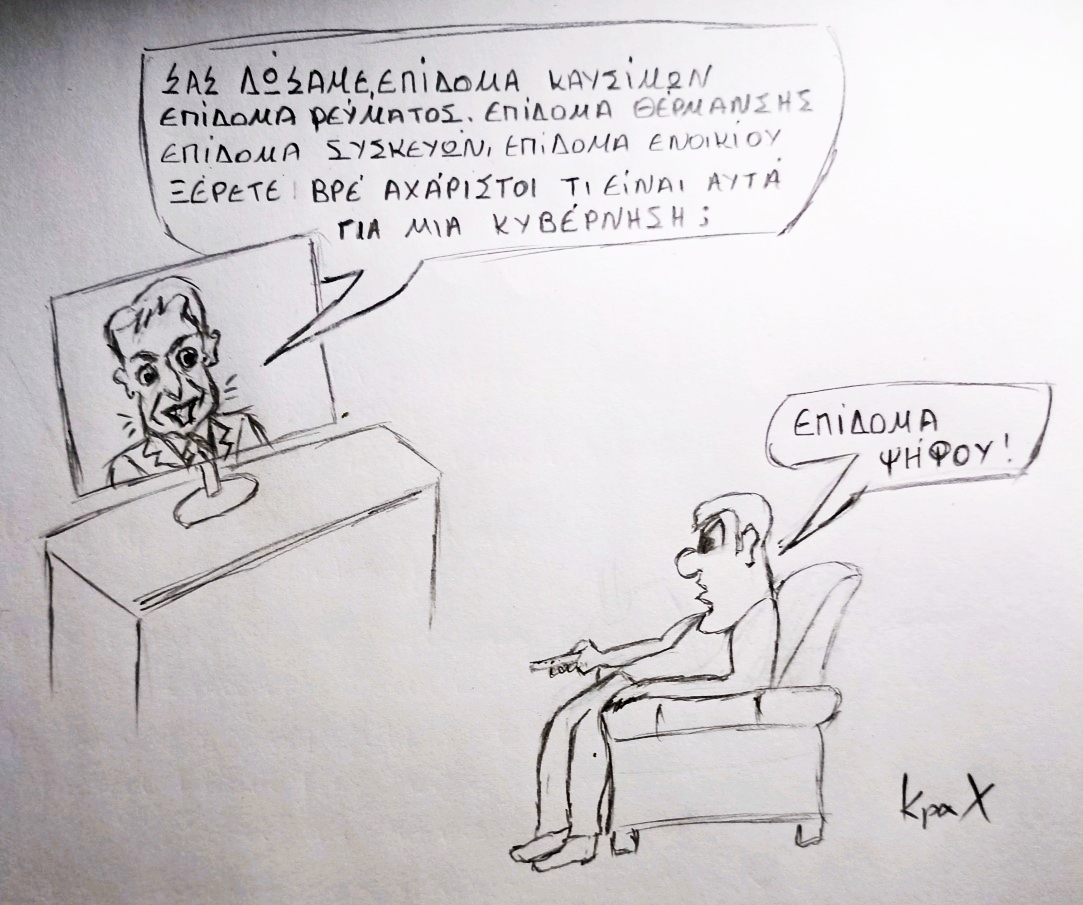 ΣΑΣ ΔΏΣΑΜΕ, ΕΠΊΔΟΜΑ ΚΑΥΣΊΜΩΝ
ΕΠΊΔΟΜΑ ΡΕΎΜΑΤΟΣ. ΕΠΊΔΟΜΑ ΘΈΡΜΑΝΣΗΣ
ΕΠΊΔΟΜΑ ΣΥΣΚΕΥΏΝ, ΕΠΊΔΟΜΑ ΕΝΟΙΚΊΟΥ
ΞΈΡΕΤΕ ΒΡΈ ΑΧΆΡΙΣΤΟΙ ΤΙ ΕΊΝΑΙ ΑΥΤΆ
ΓΙΑ ΜΙΑ ΚΥΒΈΡΝΗΣΗ;
ΕΠΊΔΟΜΑ
ΨΉΦΟΥ!
ΚραΧ